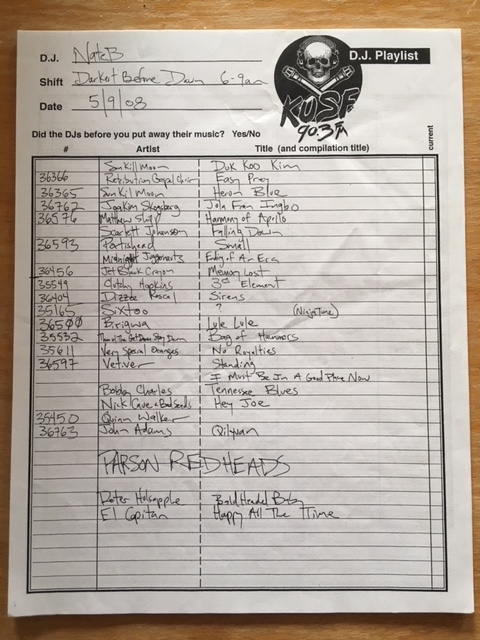 D.J. NateB
D.J. Playlist
Shift Darkest Before Dawn 6-9am
KUSF
90.3 FM
Date 5/9/08
Did the DJs before you put away their music? Yes/No
# Artist Title (and compilation title) current
Sun Kill Moon Duk Koo Kim
36366 Retribution Gospel Choir Easy Prey
36365 Sun Kill Moon Heron Blue
36762 Joakim Skogsberg Jola Fran Ingbo
36576 Matthew Shipp Harmony of Apollo
Scarlett Johanson Falling Down
36593 Portishead Small
Midnight Juggernauts Ending of An Era
36456 Jet Black Crayon Memory Lost
35549 Clutchy Hopkins 3rd Element
36404 Dizzee Rascal Sirens
35165 Sixtoo ? (NinjaTune)
36500 Birigwa Lule Lule
35532 Thao w/ The Get Down Stay Down Bag of Hammers
35611 Very Special Oranges No Royalties
36597 Vetiver Standing
I Must Be In A Good Place Now
Bobby Charles Tennessee Blues
Nick Cave & Bad Seeds Hey Joe
35450 Quinn Walker
36763 John Adams Qilyuan
PARSON REDHEADS
Peter Holsapple
El Capitan Happy All The Time